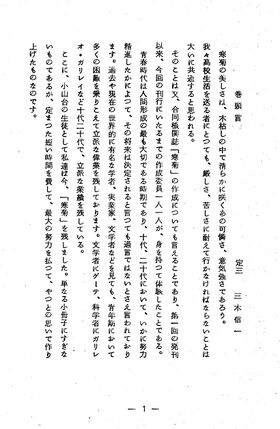 巻頭言
定三　三木信一
寒菊の美しさは、木枯しの中で清らかに咲くあの可憐さ、意気強さであろう。
我々高校生活を送る者にとつても、厳しさ、苦しさに耐えて行かなければならないことは
大いに共通すると思われる。
そのことは又、合同機関誌「寒菊」の作成についても言えることであり、第一回の発刊
以来、今回の刊行にいたるまでの作成委員一人一人が、身を持つて体験したことである。
青春時代は人間形成の最も大切である時期であり、十代、二十代において、いかに努力
精進したかによつて、その将来は決定されると言つても過言ではないとさえ言われており
ます。過去や現在の世界的に有名な学者、実業家、文学者などを見ても、青年期において
多くの困難を乗りこえて立派な偉業を残しております。文学者にゲーテ、科学者にガリレ
オ・ガリレイなど十代二十代で、立派な業績を残している。
ここに、小山台の生徒として私達は今、「寒菊」を残しました。単なる小冊子にすぎな
いものであるが、定まつた短い時間を費して、最大の努力を払つて、やつとの思いで作り
上げたものなのです。
— 1 —